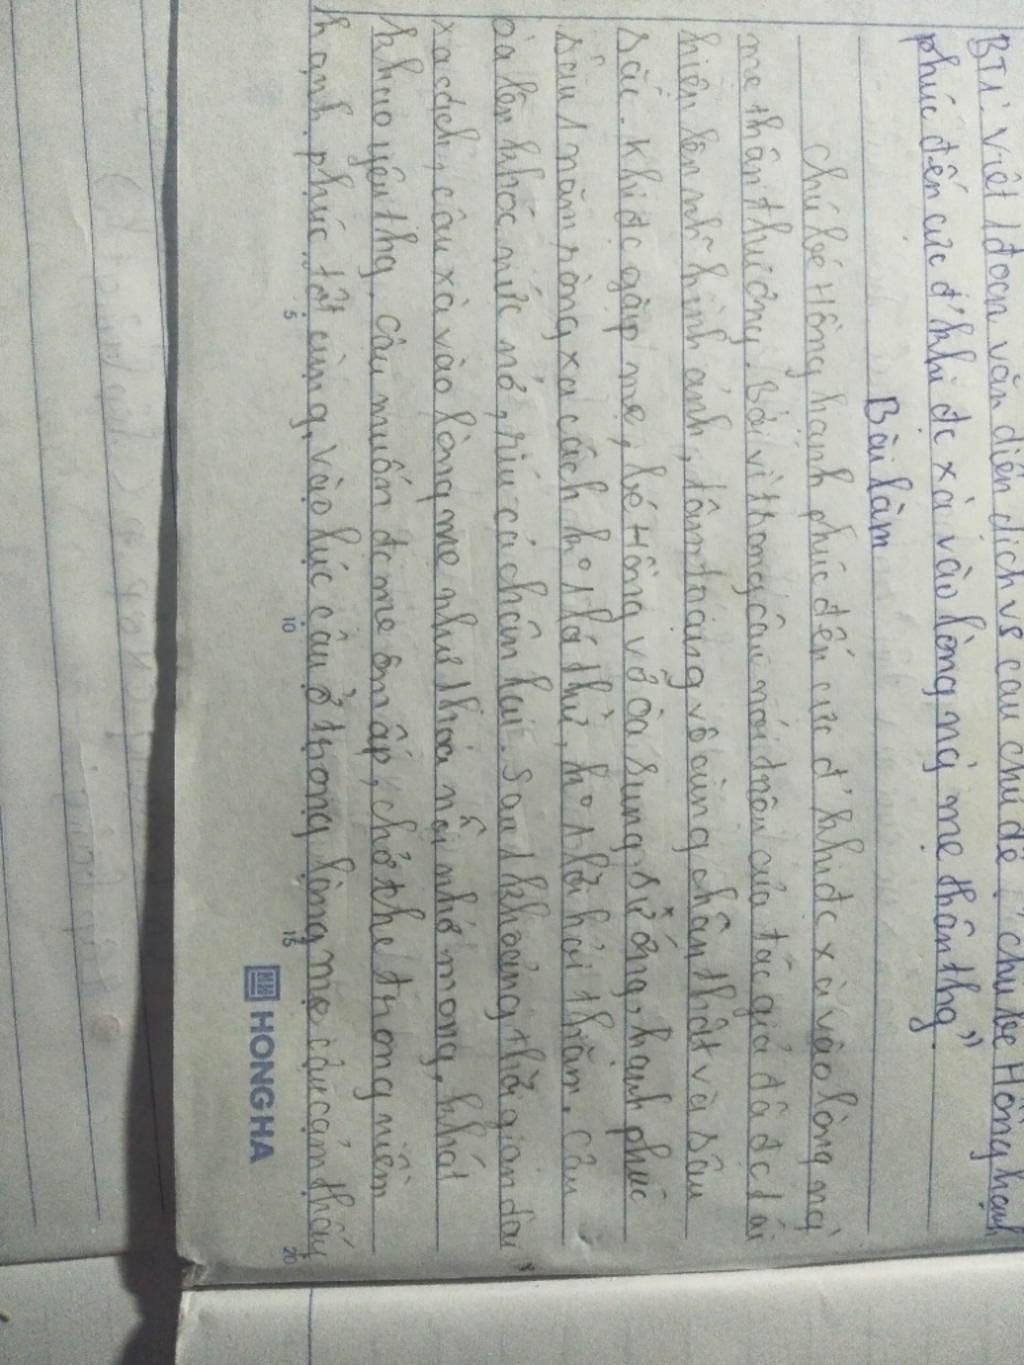 BT1: Viết 1 đoạn văn diễn dịch vs câu chủ đề: "chú bé Hồng hạnh
phúc đến cực đ' khi đc xà vào lòng ng` mẹ thân thg".
Bài làm
Chú bé Hồng hạnh phúc đến cực đ' khi đc xà vào lòng ng`
mẹ thân thương. Bởi vì trong câu nói đầu của tác giả đã đc tái
hiện lên nh~ hình ảnh, tâm trạng vô cùng chân thật và sâu
sắc. Khi đc gặp mẹ, bé Hồng vỡ òa sung sướng, hạnh phúc
sau 1 năm ròng xa cách ko 1 lá thư, ko 1 lời hỏi thăm. Cậu
òa lên khóc nức nở, ríu cả chân lại. Sau 1 khoảng thời gian dài
xa cách, cậu xà vào lòng mẹ như thỏa nỗi nhớ mong, khát
khao yêu thg. Cậu muốn đc mẹ ôm ấp, chở che trong niềm
hạnh phúc tột cùng, vào lúc cậu ở trong lòng mẹ cậu cảm thấy
5
10
15
20
HH HONG HA